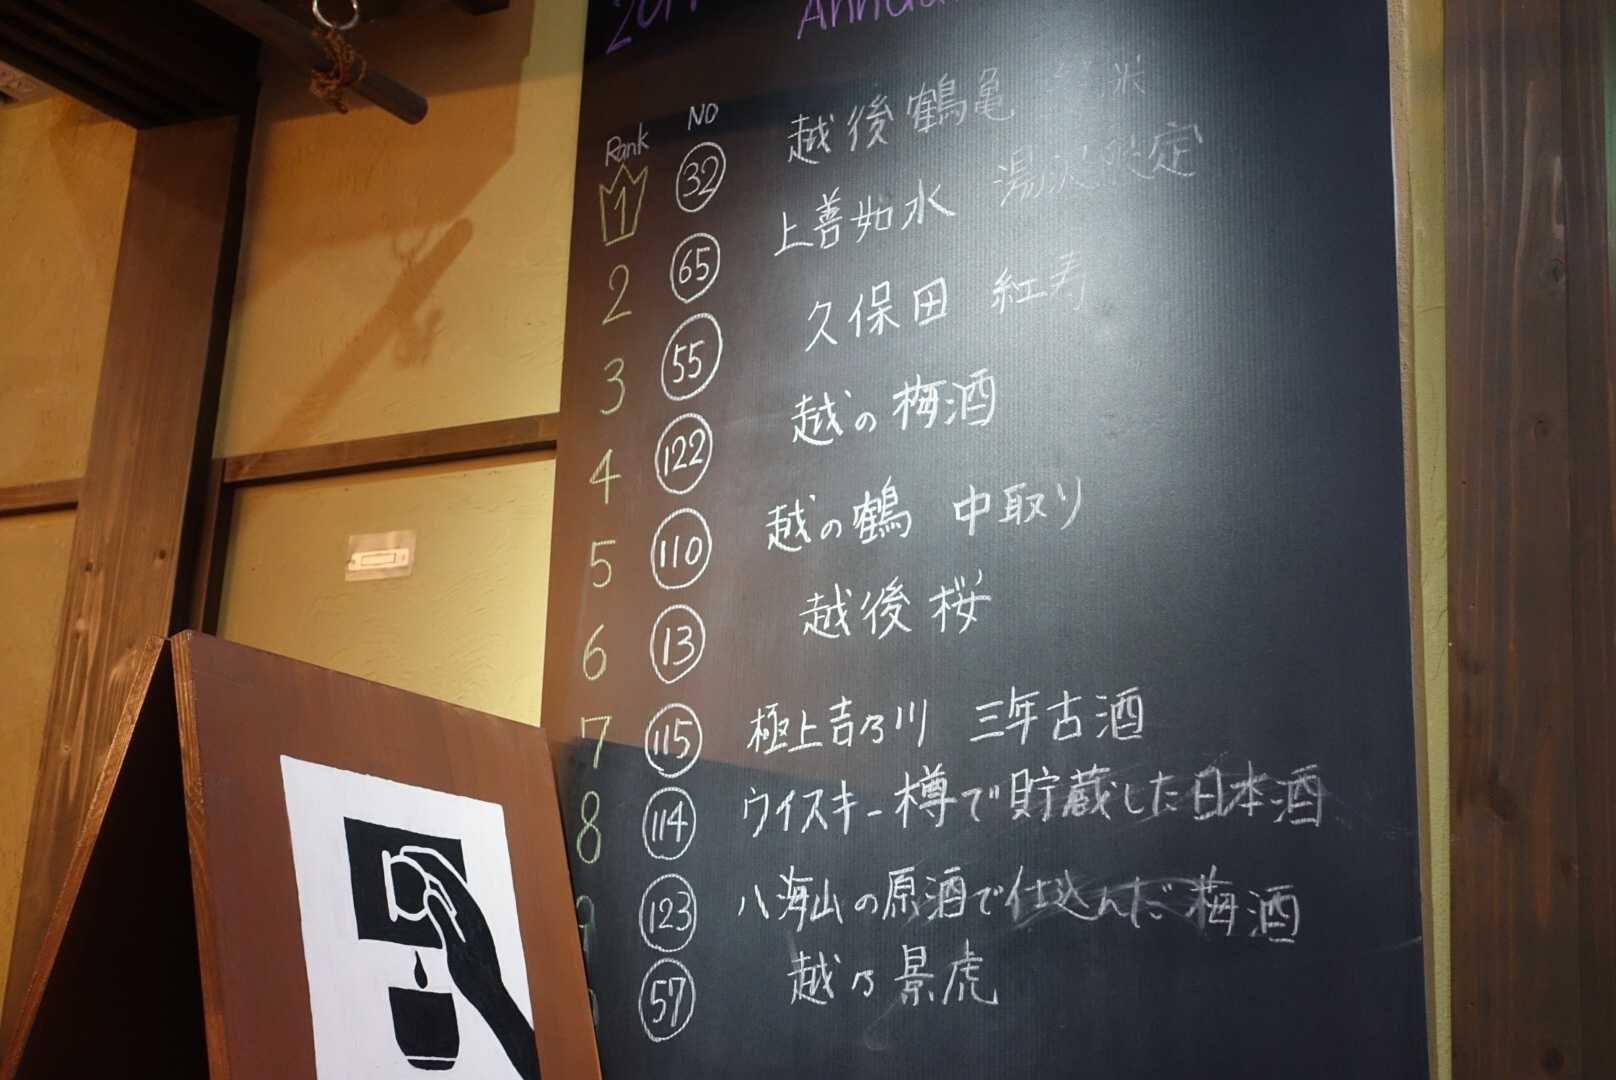 Rank NO
1 32 越後鶴亀 純米
2 65 上善如水 湯沢限定
3 55 久保田 紅寿
4 122 越の梅酒
5 110 越の鶴 中取り
6 13 越後桜
7 115 極上吉乃川 三年古酒
8 114 ウイスキー樽で貯蔵した日本酒
123 八海山の原酒で仕込んだ梅酒
57 越乃景虎